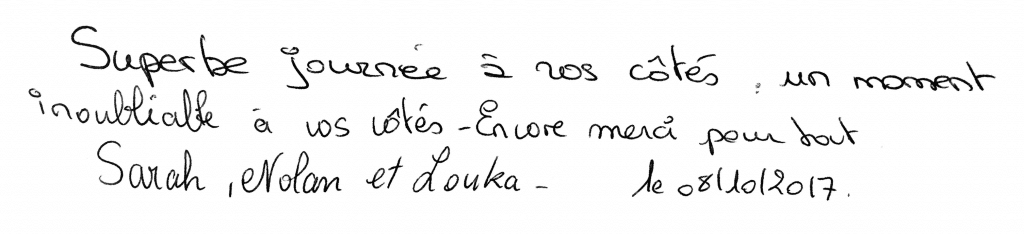 Superbe journée à vos côtés, un moment
inoubliable à vos côtés - Encore merci pour tout
Sarah, Nolan et Louka - le 08/10/2017.